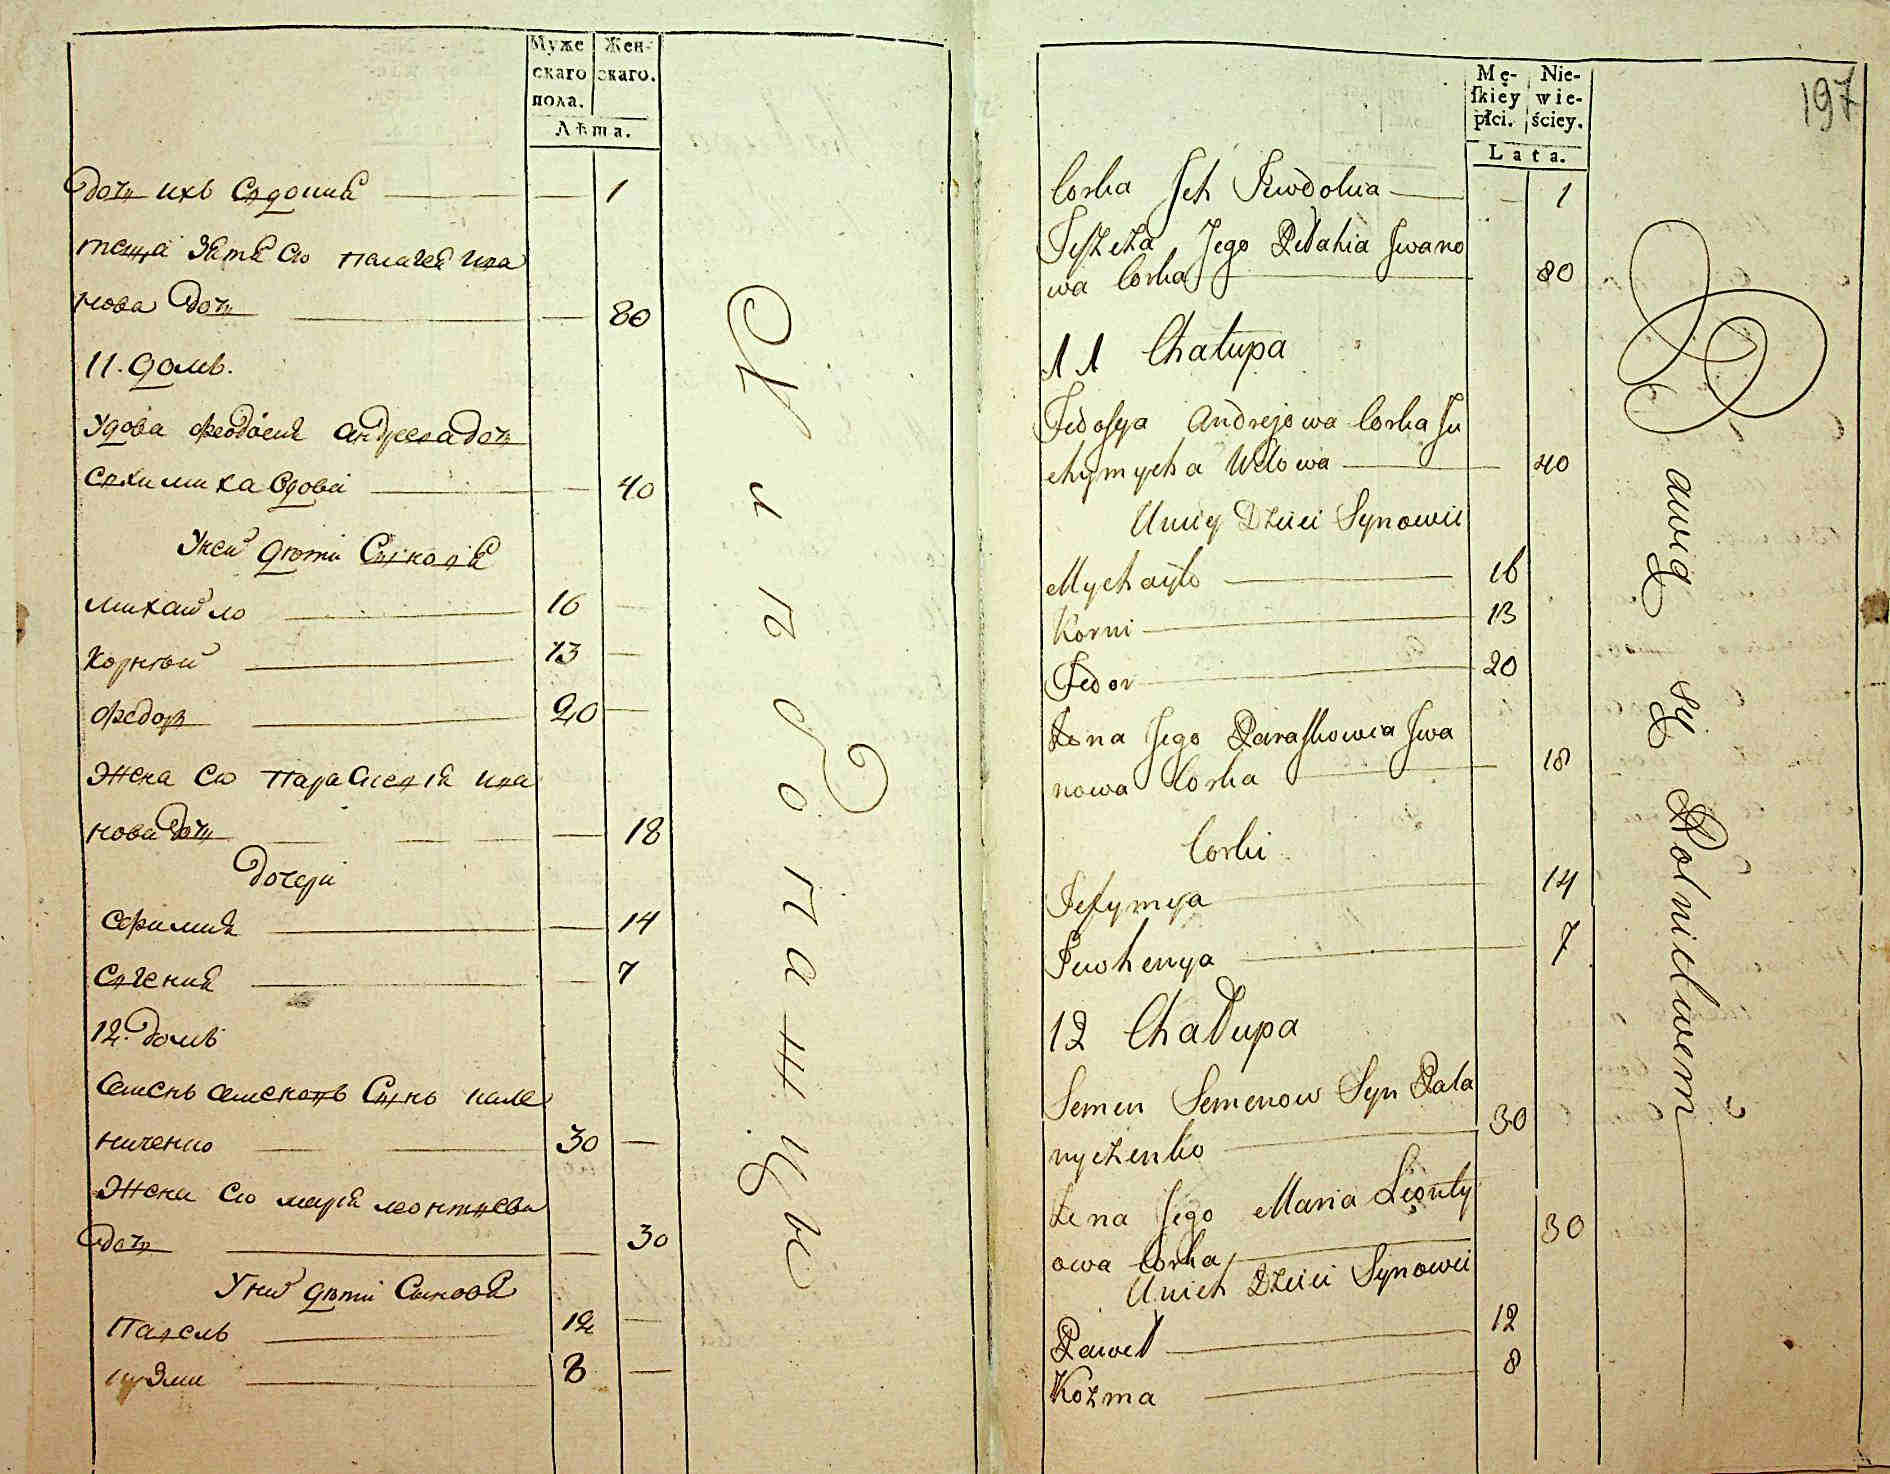 Муже
скаго
пола.
Жен-
скаго.
Лѣта.
дочь ихъ Євдокия 1
теща Зятя єго Пелагея Ива
нова дочь 80
11. домъ.
Удова Феодосия Андреева дочь
вдова 40
У неи дѣти Синовя
Михайло 16
Корнѣй 13
Федоръ 20
Жена єго Парасковия Ива
нова дочь 18
дочери
Єфимия 14
Євгения 7
12. домъ
Семенъ Семеновъ Синъ Пала
ниченко 30
Жена єго Мария Леонтѣева
дочь 30
У них дѣти Синовя
Павелъ 12
Кузма 8
Mę-
skiéy
płci.
Nie-
wie-
ściey.
Lata.
197
Corka Jch Jewdokia 1
Teszcza Jego Pelahia Jwano
wa Corka 80
11 Chałupa
Fedosya Andrejowa Corka Ju
chymycha Wdowa 40
U niey Dzieci Synowie
Mychayło 16
Korni 13
Fedor 20
Żona Jego Paraskowia Jwa
nowa Corka 18
Corki
Jefymya 14
Jewhenya 7
12 Chałupa
Semen Semenow Syn Pala
nyczenko 30
Żena Jego Maria Leonty
owa Corka 30
U nich Dzieci Synowie
Paweł 12
Kozma 8
Bawią się Rolnictwem